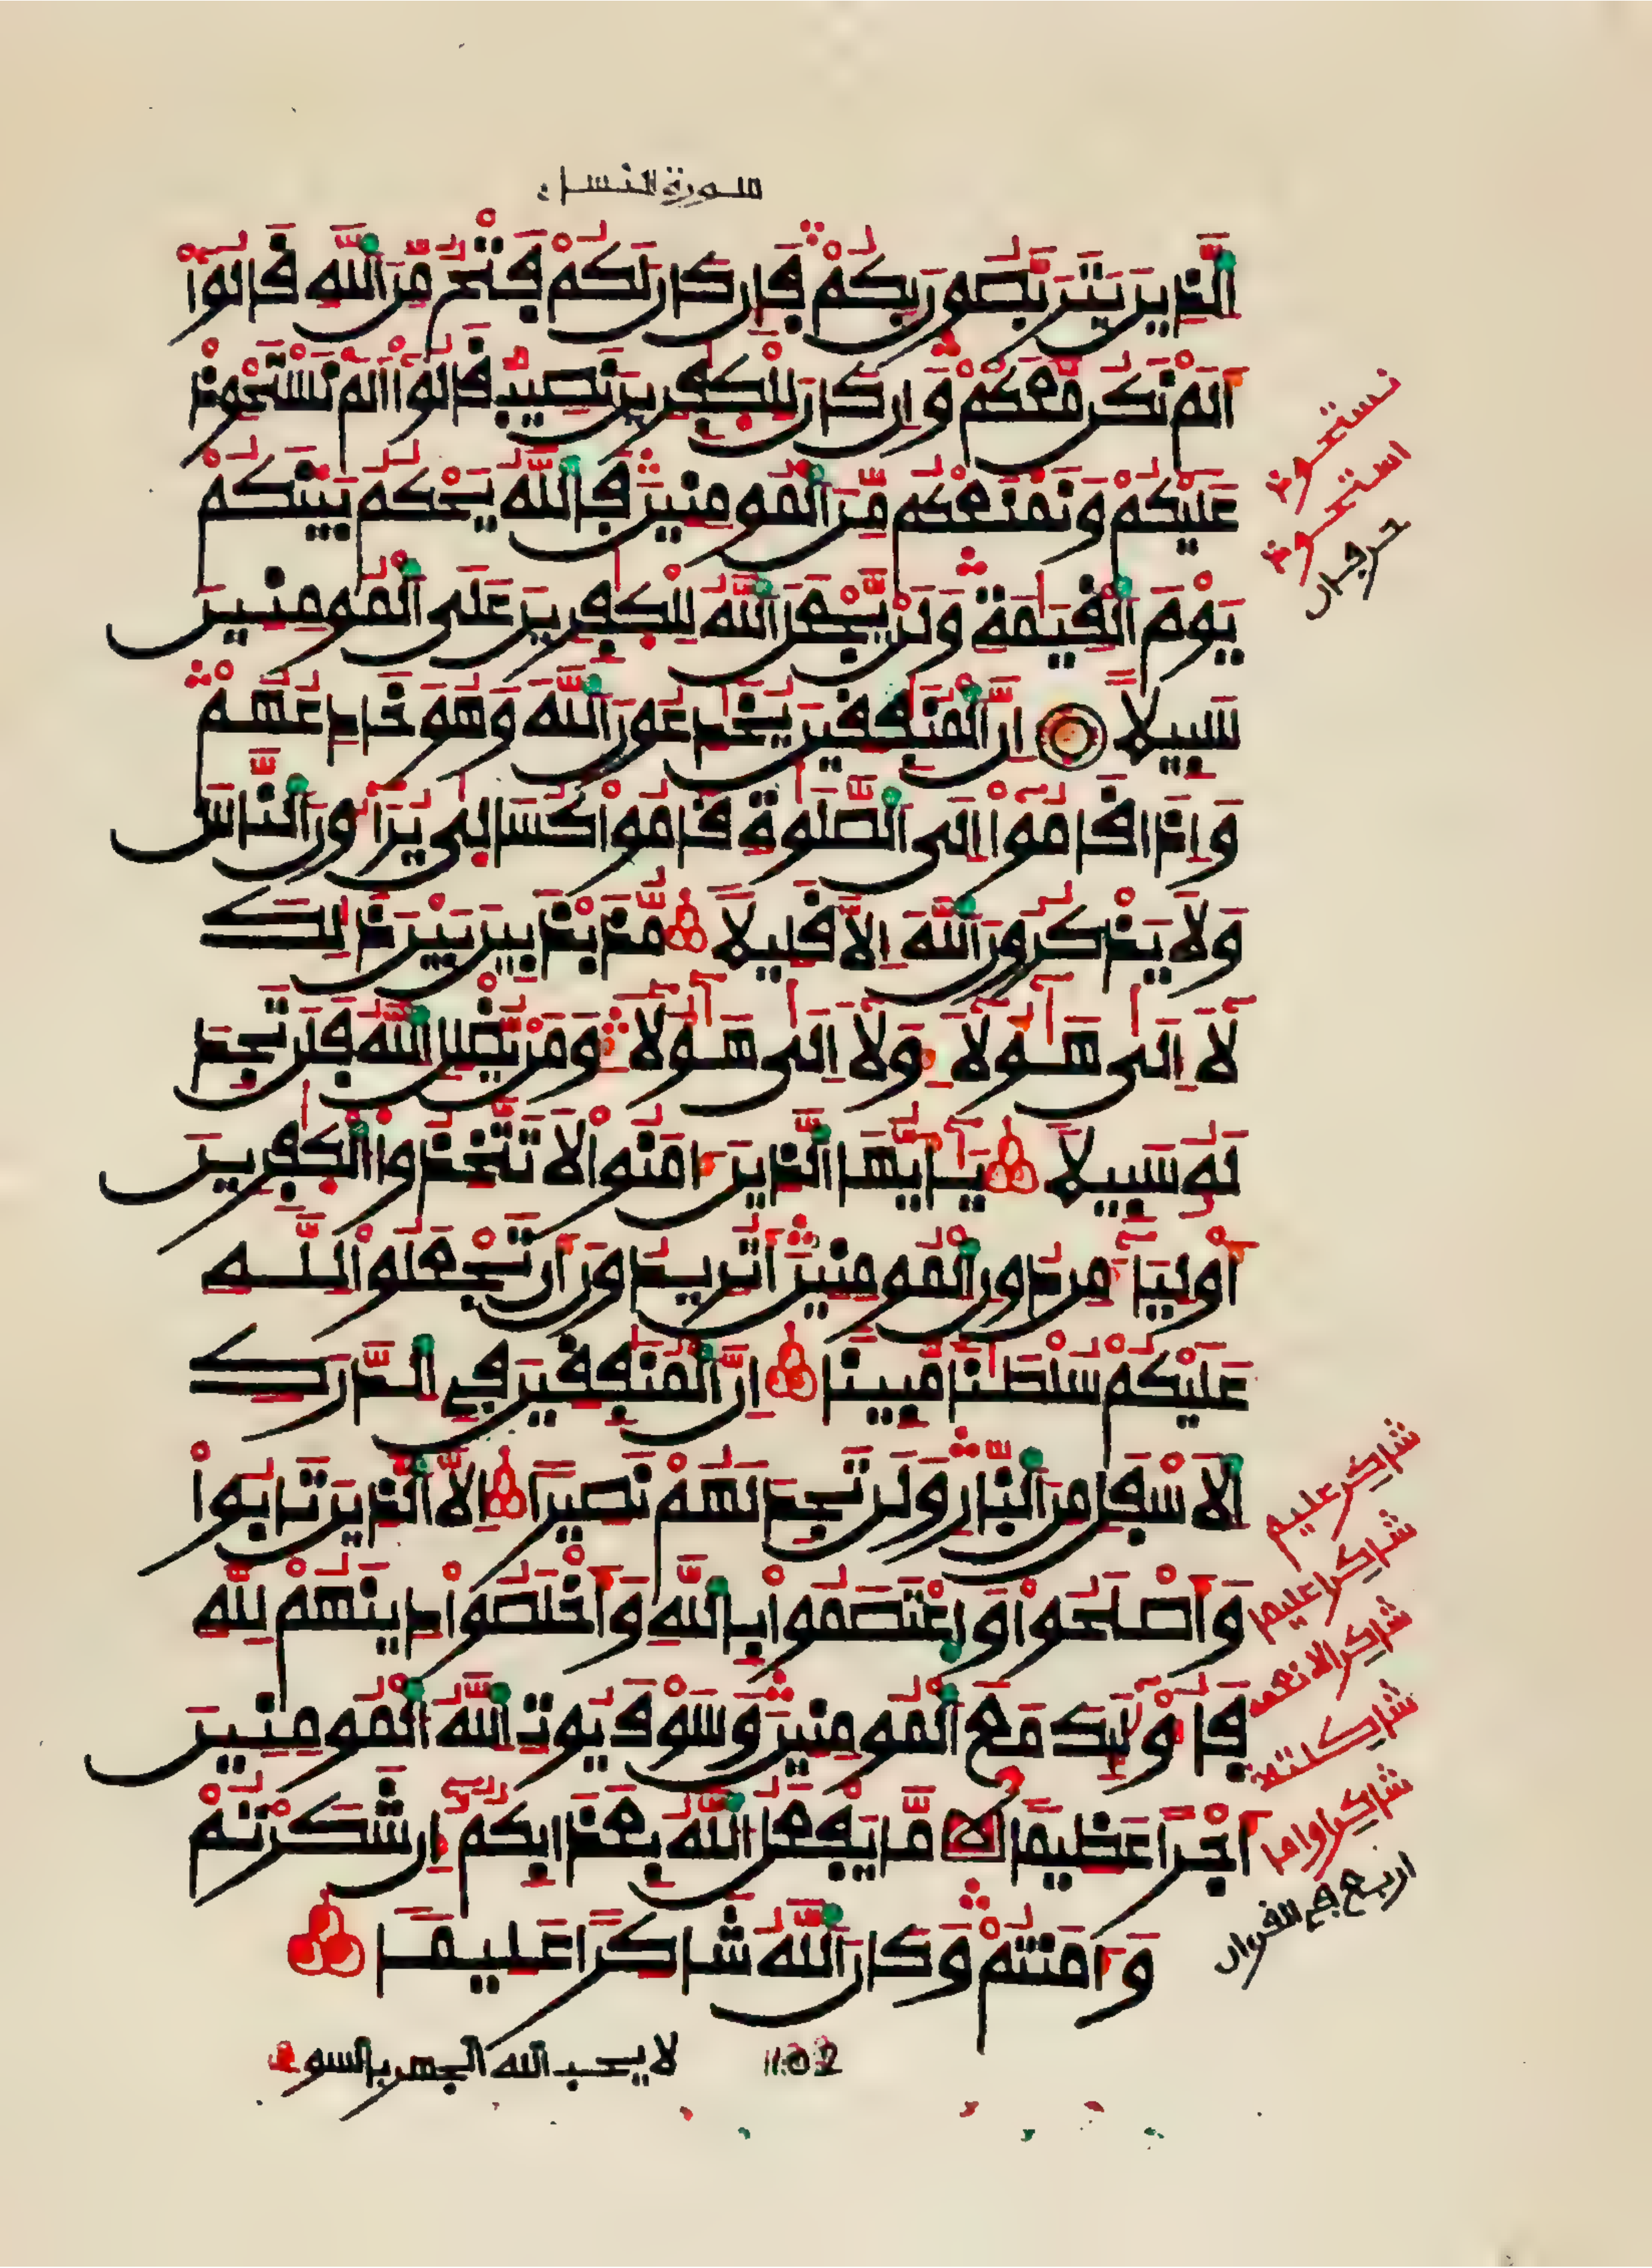 سورة النساء
الَّذِينَ يَتَرَبَّصُونَ بِكُمْ فَإِن كَانَ لَكُمْ فَتْحٌ مِّنَ اللَّهِ قَالُوا
أَلَمْ نَكُن مَّعَكُمْ وَإِن كَانَ لِلْكٰفِرِينَ نَصِيبٌ قَالُوا أَلَمْ نَسْتَحْوِذْ
عَلَيْكُمْ وَنَمْنَعْكُم مِّنَ الْمُومِنِينَ فَاللَّهُ يَحْكُمُ بَيْنَكُمْ
يَوْمَ الْقِيٰمَةِ وَلَنْ يَّجْعَلَ اللَّهُ لِلْكٰفِرِينَ عَلَى الْمُومِنِينَ
سَبِيلًا إِنَّ الْمُنٰفِقِينَ يُخٰدِعُونَ اللَّهَ وَهُوَ خَادِعُهُمْ
وَإِذَا قَامُوا إِلَى الصَّلَوٰةِ قَامُوا كُسَالٜىٰ يُرَآءُونَ النَّاسَ
وَلَا يَذْكُرُونَ اللَّهَ إِلَّا قَلِيلًا مُّذَبْذَبِينَ بَيْنَ ذَٰلِكَ
لَآ إِلَىٰ هَٰٓؤُلَآءِ وَلَآ إِلَىٰ هَٰٓؤُلَآءِ وَمَنْ يُّضْلِلِ اللَّهُ فَلَن تَجِدَ
لَهُ سَبِيلًا يَٰٓأَيُّهَا الَّذِينَ ءَامَنُوا لَا تَتَّخِذُوا الْكٰفِرِينَ
أَوْلِيَآءَ مِن دُونِ الْمُومِنِينَ أَتُرِيدُونَ أَن تَجْعَلُوا لِلَّهِ
عَلَيْكُمْ سُلْطَٰنًا مُّبِينًا إِنَّ الْمُنٰفِقِينَ فِي الدَّرَكِ
الْأَسْفَلِ مِنَ النَّارِ وَلَن تَجِدَ لَهُمْ نَصِيرًا إِلَّا الَّذِينَ تَابُوا
وَأَصْلَحُوا وَاعْتَصَمُوا بِاللَّهِ وَأَخْلَصُوا دِينَهُمْ لِلَّهِ
فَأُوْلَٰٓئِكَ مَعَ الْمُومِنِينَ وَسَوْفَ يُوتِ اللَّهُ الْمُومِنِينَ
أَجْرًا عَظِيمًا مَّا يَفْعَلُ اللَّهُ بِعَذَابِكُمْ إِن شَكَرْتُمْ
وَءَامَنتُمْ وَكَانَ اللَّهُ شَاكِرًا عَلِيمًا
لا يحب الله الجهر بالسوء
102
نستحوذ
استحوذ
حرفان
شاكر عليم
شاكرا عليما
شاكرا لانعمه
شاكرا واما
اربع في القرءان